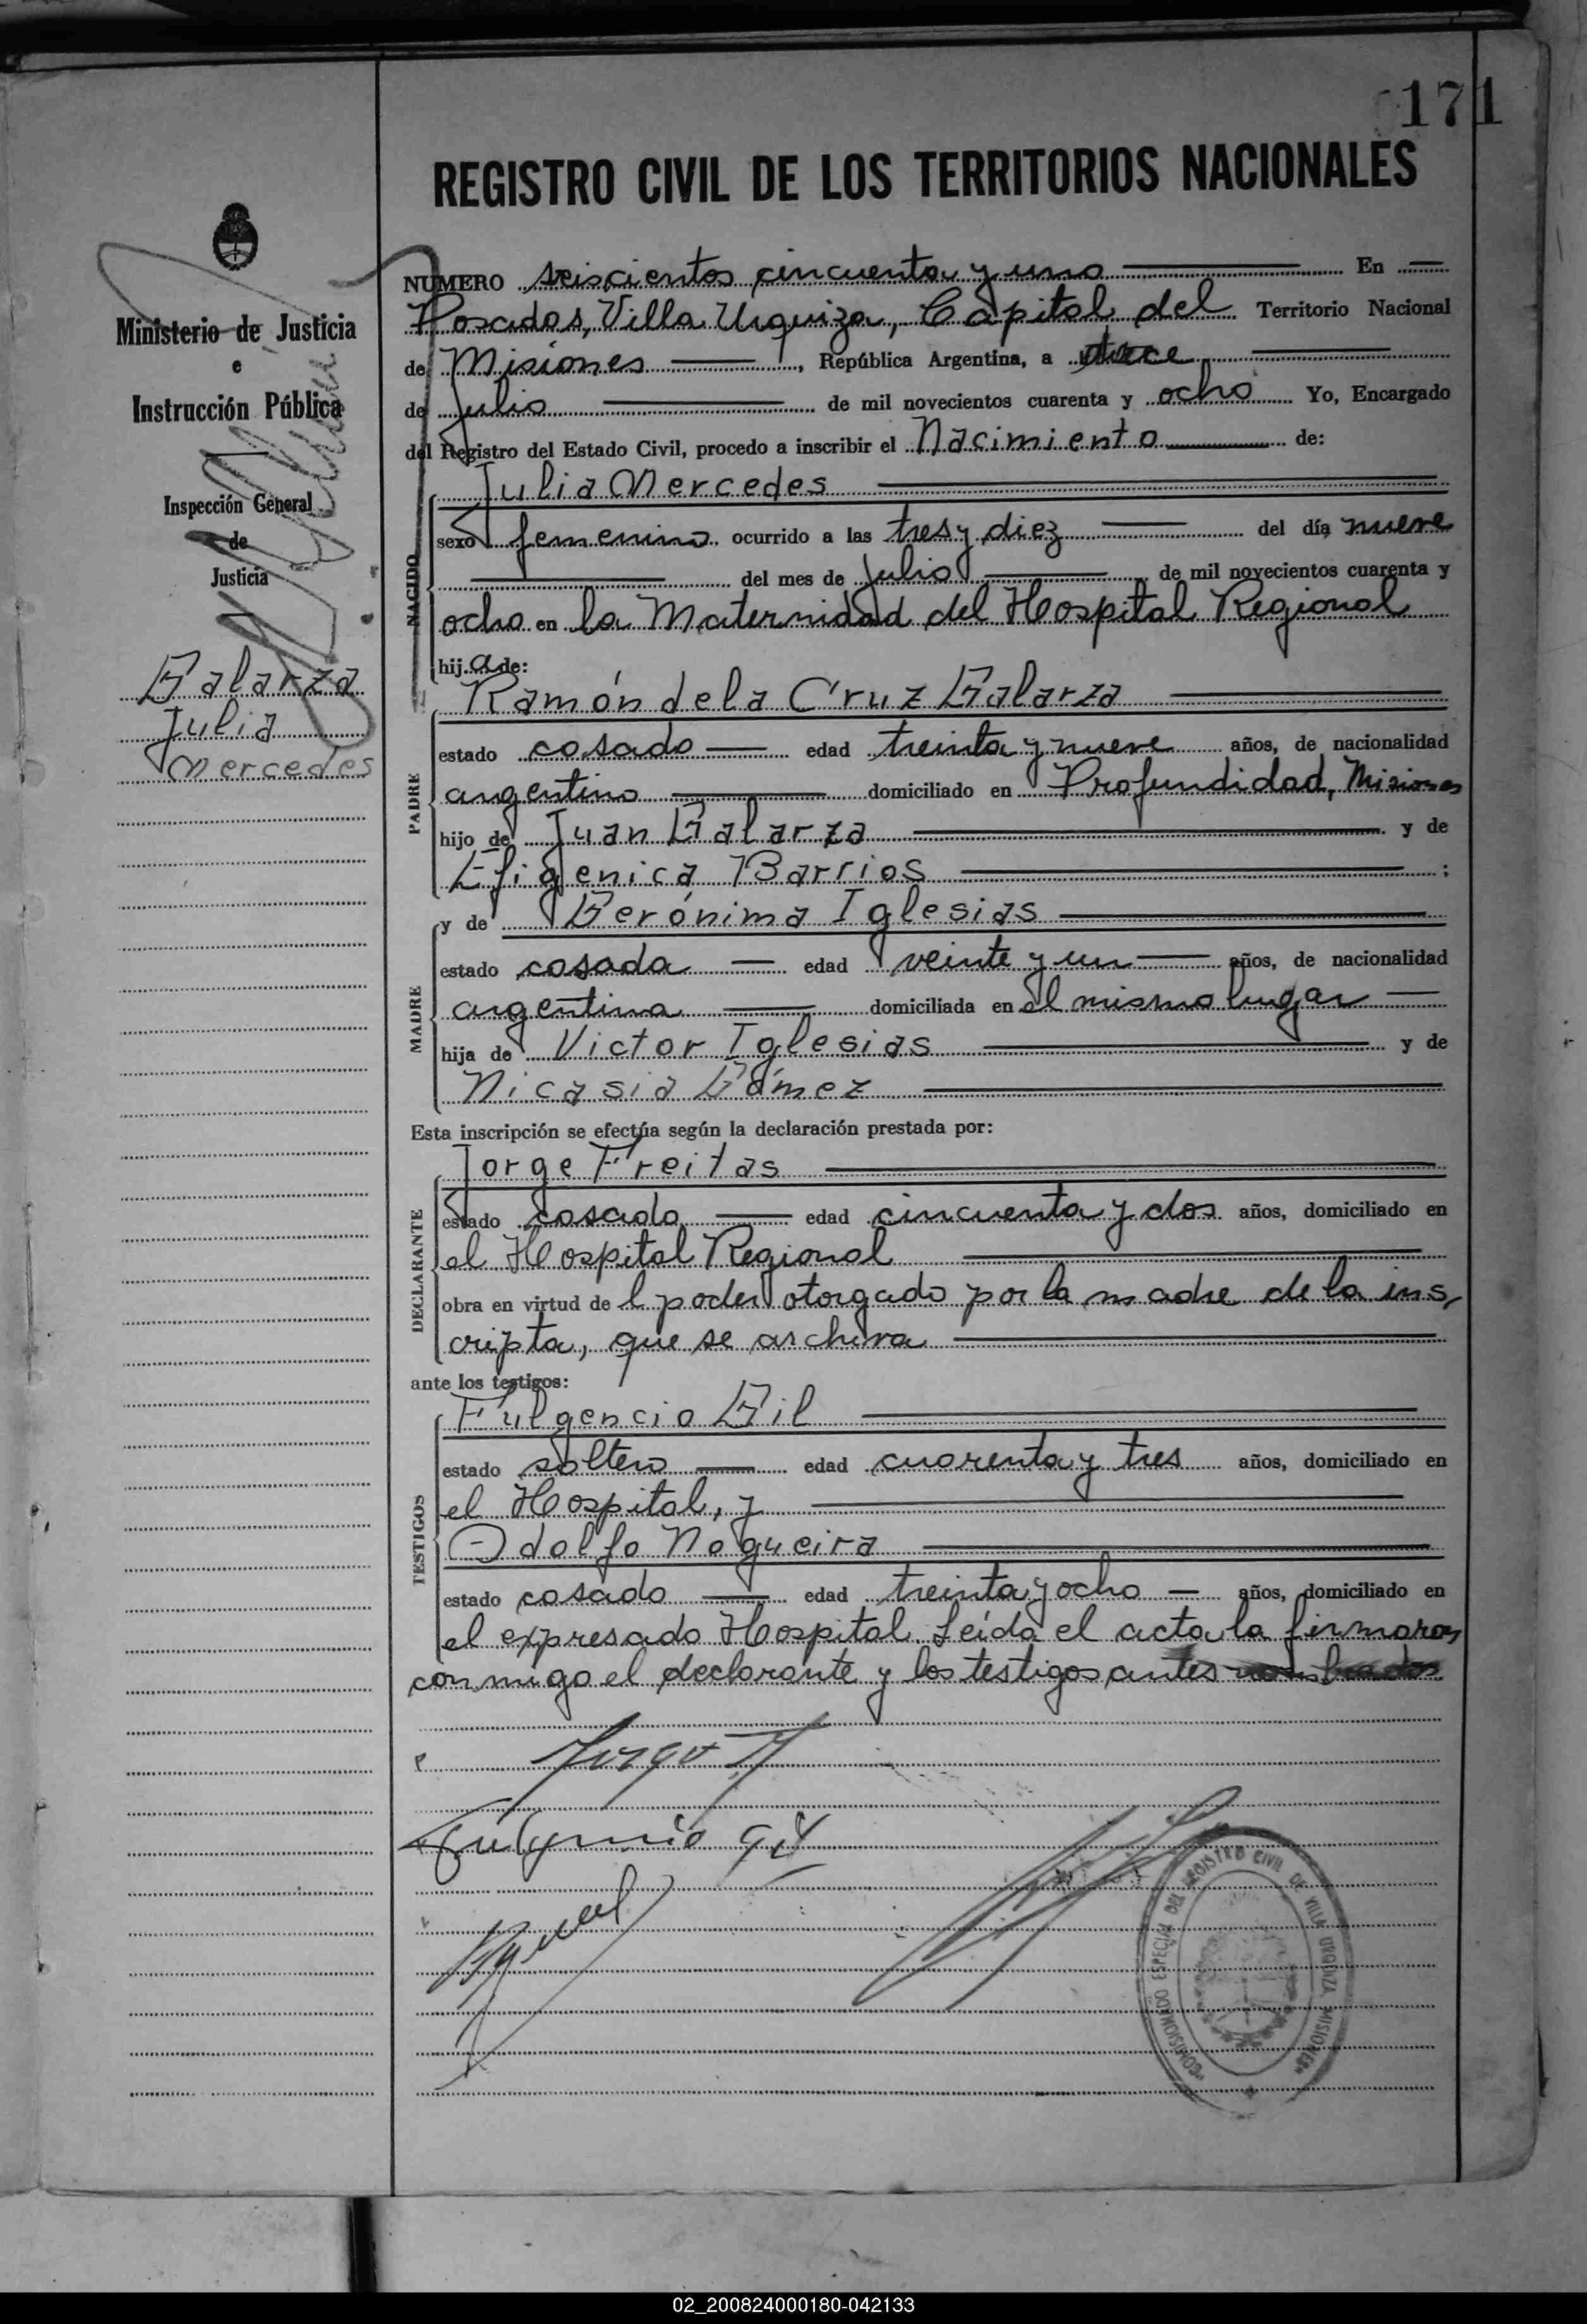 171
REGISTRO CIVIL DE LOS TERRITORIOS NACIONALES
Ministerio de Justicia
e
Instrucción Pública
Inspección General
de
Justicia
Galarza
Julia
Mercedes
NUMERO seiscientos cincuenta y uno En
Posadas, Villa Urquiza, Capital del Territorio Nacional
de Misiones, República Argentina, a
de Julio de mil novecientos cuarenta y ocho Yo, Encargado
del Registro del Estado Civil, procedo a inscribir el Nacimiento de:
NACIDO
Julia Mercedes
sexo femenino ocurrido a las tres y diez del día nueve
del mes de Julio de mil novecientos cuarenta y
ocho en la Maternidad del Hospital Regional
hija de:
PADRE
Ramón de la Cruz Galarza
estado casado edad treinta y nueve años, de nacionalidad
argentino domiciliado en Profundidad, Misiones
hijo de Juan Galarza y de
Efigenica Barrios ;
MADRE
y de Gerónima Iglesias
estado casada edad veinte y un años, de nacionalidad
argentina domiciliada en el mismo lugar
hija de Victor Iglesias y de
Nicasia Gómez
Esta inscripción se efectúa según la declaración prestada por:
DECLARANTE
Jorge Freitas
estado casado edad cincuenta y dos años, domiciliado en
el Hospital Regional
obra en virtud del poder otorgado por la madre de la ins,
cripta, que se archiva
ante los testigos:
TESTIGOS
Fulgencio Gil
estado soltero edad cuarenta y tres años, domiciliado en
el Hospital, y
Odolfo Nogueira
estado casado edad treinta y ocho años, domiciliado en
el expresado Hospital. Leída el acta la firmaron
conmigo el declarante y los testigos antes nombrados
Jorge F
Fulgencio Gil
COMISIONADO ESPECIAL DEL REGISTRO CIVIL DE VILLA URQUIZA MISIONES
02_200824000180-042133